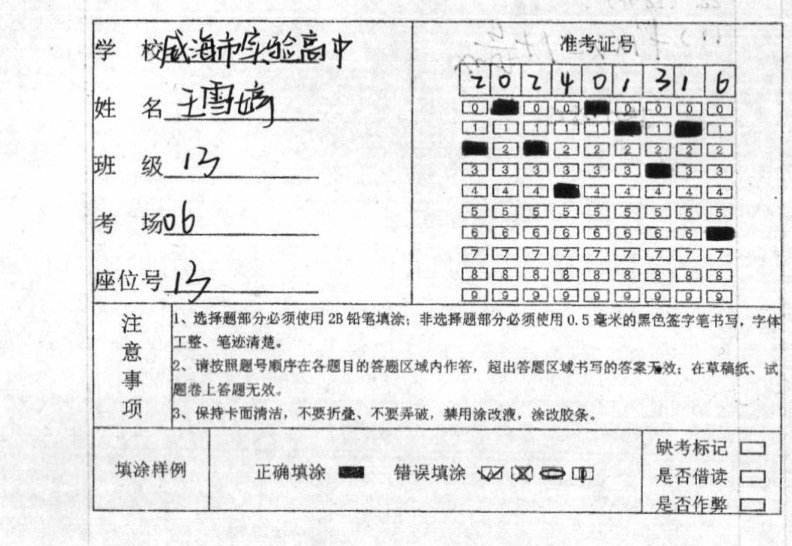 学 校威海市实验高中
准考证号
2 0 2 4 0 1 3 1 6
姓 名 王雪婷
班 级 13
考 场06
座位号 13
0 0 0 0 0 0 0
1 1 1 1 1 1 1
2 2 2 2 2 2 2
3 3 3 3 3 3 3 3
4 4 4 4 4 4 4 4
5 5 5 5 5 5 5 5 5
6 6 6 6 6 6 6 6
7 7 7 7 7 7 7 7 7
8 8 8 8 8 8 8 8 8
9 9 9 9 9 9 9 9 9
注意事项
1、选择题部分必须使用 2B 铅笔填涂；非选择题部分必须使用 0.5 毫米的黑色签字笔书写，字体
工整、笔迹清楚。
2、请按照题号顺序在各题目的答题区域内作答，超出答题区域书写的答案无效；在草稿纸、试
题卷上答题无效。
3、保持卡面清洁，不要折叠、不要弄破，禁用涂改液，涂改胶条。
填涂样例 正确填涂 错误填涂
缺考标记
是否借读
是否作弊